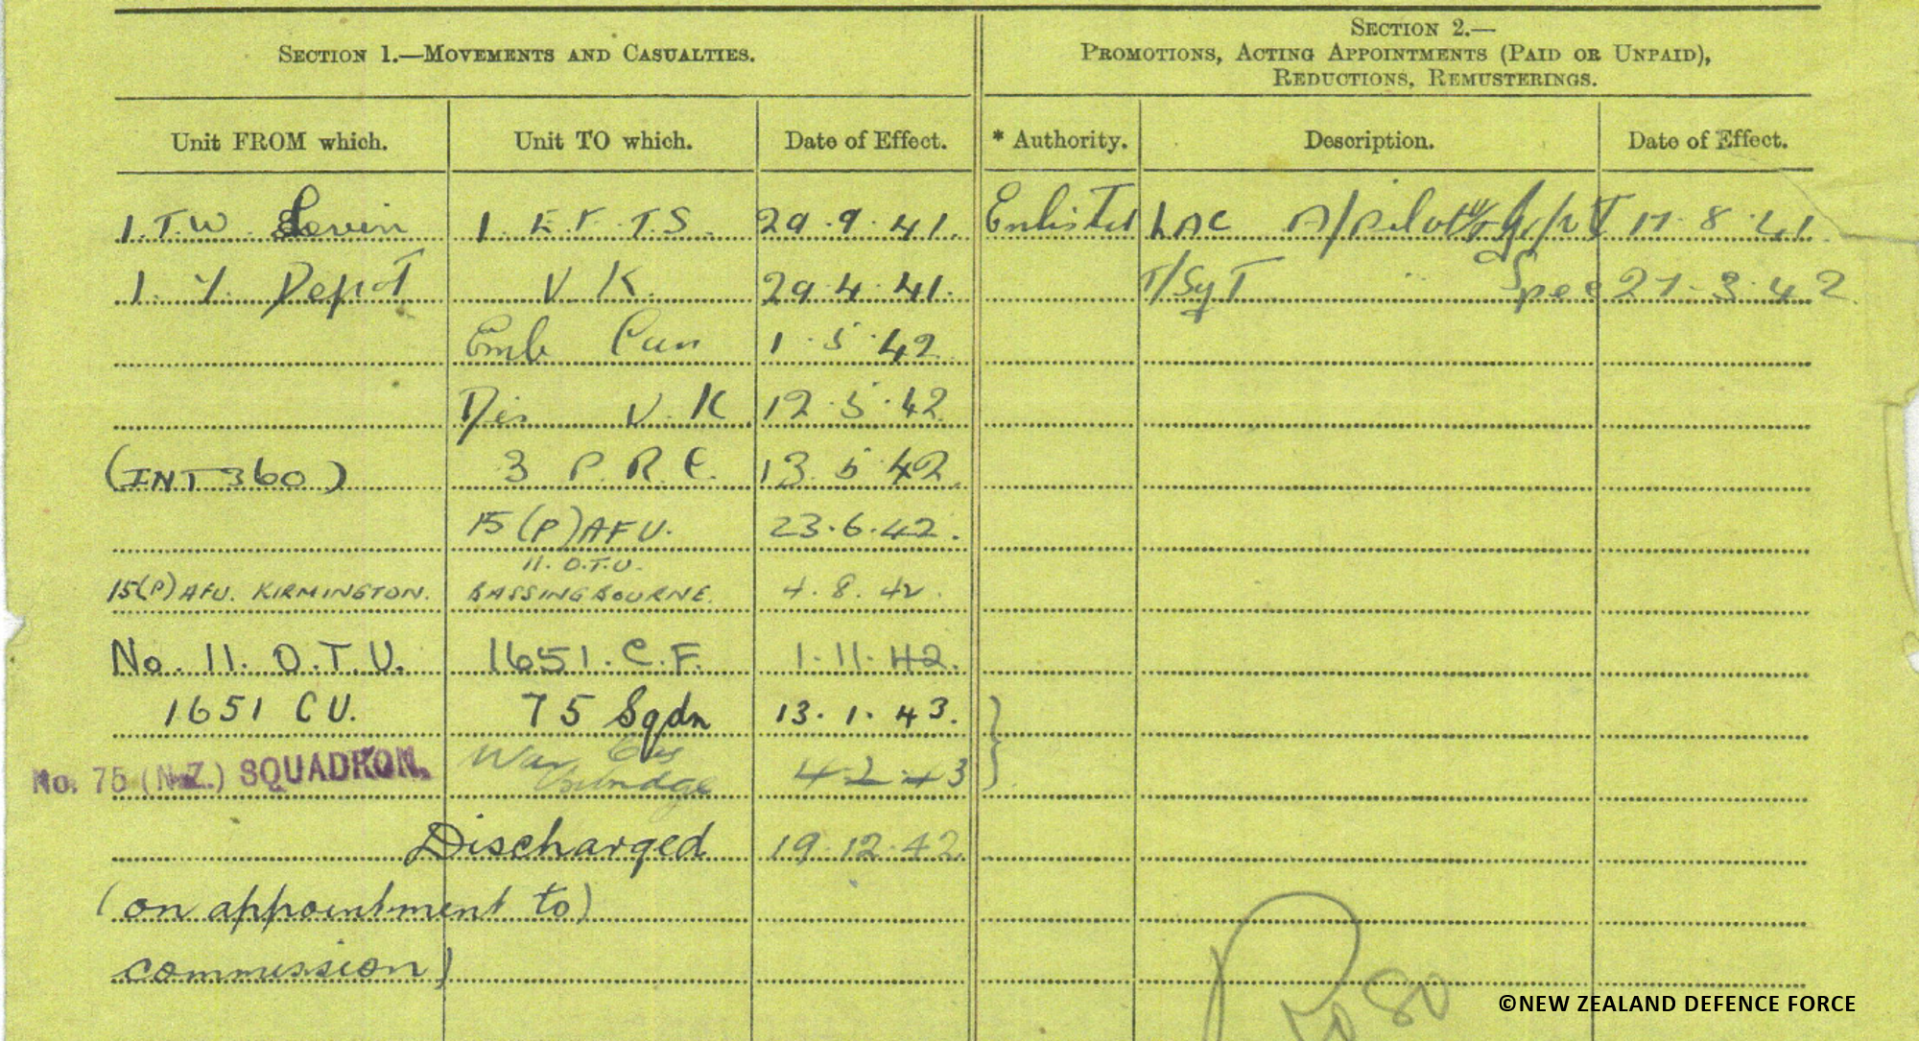 SECTION 1.—MOVEMENTS AND CASUALTIES.
SECTION 2.—
PROMOTIONS, ACTING APPOINTMENTS (PAID OR UNPAID),
REDUCTIONS, REMUSTERINGS.
Unit FROM which. Unit TO which. Date of Effect. * Authority. Description. Date of Effect.
I.T.W. Levin 1 E.F.T.S. 29.9.41. Enlisted LAC A/Pilot 17.8.41
1. Y. Depot U K. 29.4.41. T/Sgt Spec 27.3.42
Emb Can 1.5.42
Dis U.K 12.5.42
(INT 360) 3 P.R.C. 13.5.42
15 (P) AFU. 23.6.42.
11. O.T.U.
15(P) AFU. KIRMINGTON. BASSINGBOURNE. 4.8.42.
No. 11. O.T.U. 1651. C.F. 1.11.42.
1651 CU. 75 Sqdn 13.1.43.
No. 75 (N.Z.) SQUADRON. War Cas 4.2.43
Uxbridge
Discharged 19.12.42.
(on appointment to)
commission)
©NEW ZEALAND DEFENCE FORCE